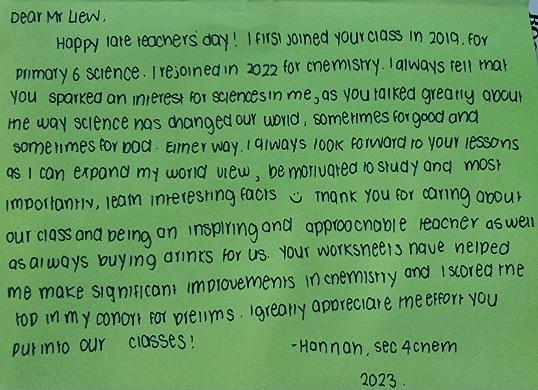 Dear Mr Liew,
Happy late teachers' day! I first joined your class in 2019, for
primary 6 science. I rejoined in 2022 for chemistry. I always felt that
you sparked an interest for sciences in me, as you talked greatly about
the way science has changed our world, sometimes for good and
sometimes for bad. Either way, I always look forward to your lessons
as I can expand my world view, be motivated to study and most
importantly, learn interesting facts ☺ Thank you for caring about
our class and being an inspiring and approachable teacher as well
as always buying drinks for us. Your worksheets have helped
me make significant improvements in chemistry and I scored the
top in my cohort for prelims. I greatly appreciate the effort you
put into our classes!
-Hannah, sec 4 chem
2023.